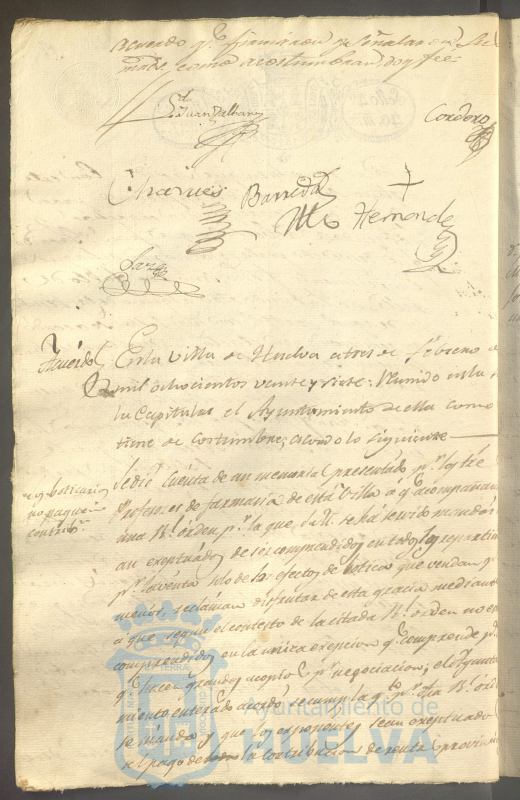 acuerdo q.e firmaron y señalaron sus
mdes. como acostumbran, doy fee
Juan Dalbarez
Cordero
Charnes Barreda
Hernande
Acuerdo
En la Villa de Huelva a tres de febrero de
mil ochocientos veinte y siete: Reunido en la
la Capitular el Ayuntamiento de ella como
tiene de costumbre, acordo lo siguiente
q.e los boticarios
no paguen
contrib.n
Se dio cuenta de un memorial presentado p.r los tres
Profesores de farmacia de esta Villa a q.e acompañan
una R.l orden p.r la que, S.M. se ha servido mandar
sean exeptuados de ser comprendidos en todos los repartim
p.r la venta solo de los efectos de botica que venden p.r
menor, reclaman disfrutar de esta gracia mediante
a que segun el contesto de la citada R.l orden no estan
comprendidos en la unica exepcion q.e comprende p.r
q.e hacen grandes acopios p.r negociacion; el Ayunta
miento enterado acordó se cumpla q.e p.r dha R.l orden
se manda y que los exponentes sean exeptuados
del pago de la contribucion de renta provincia
Ayuntamiento de
HUELVA